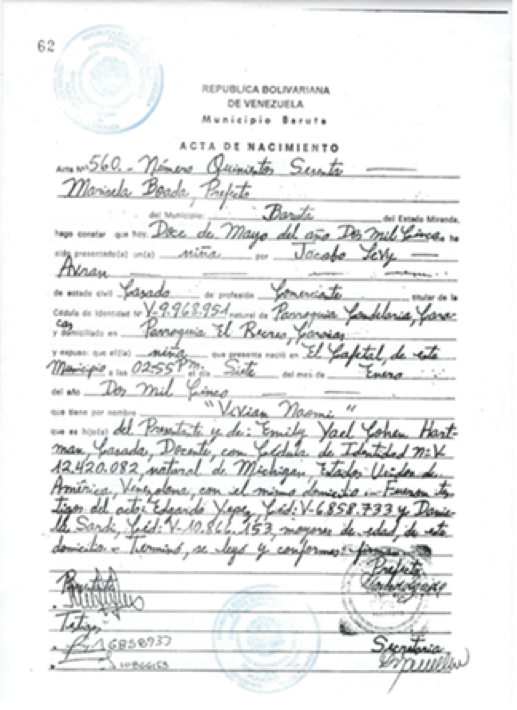 62
REPUBLICA BOLIVARIANA
DE VENEZUELA
Municipio Baruta
ACTA DE NACIMIENTO
Acta Nº 560.- Número Quinientos Sesenta
Marisela Boada, Prefecto
del Municipio: Baruta del Estado Miranda,
hago constar que hoy: Doce de Mayo del año Dos Mil Cinco ha
sido presentado(a) un(a) niña por Jacobo Levy
de estado civil Casado de profesión Comerciante titular de la
Cédula de Identidad Nº V-9.968.951 natural de Parroquia Candelaria, Cara-
cas
y domiciliado en Parroquia El Recreo, Caracas
y expuso: que el(la) niña que presenta nació en El Cafetal, de este
Municipio a las 02:55 Pm. el día Siete del mes de Enero
del año Dos Mil Cinco
que tiene por nombre "Vivian Naomi"
que es hijo(a) del Presentante y de: Emily Yael Cohen Hart-
man, Casada, Docente, con Cédula de Identidad n: V-
12.420.082 natural de Michigan, Estados Unidos de
América, Venezolana, con el mismo domicilio.- Fueron tes-
tigos del acto: Edgardo Yepez, Céd: V-6858.733 y Danie-
la Sardi, Céd: V-10.866.153, mayores de edad, de este
domicilio.- Terminó, se leyó y conformes firman.-
Prefecto
Presentante
Testigos
10866153
Secretaria